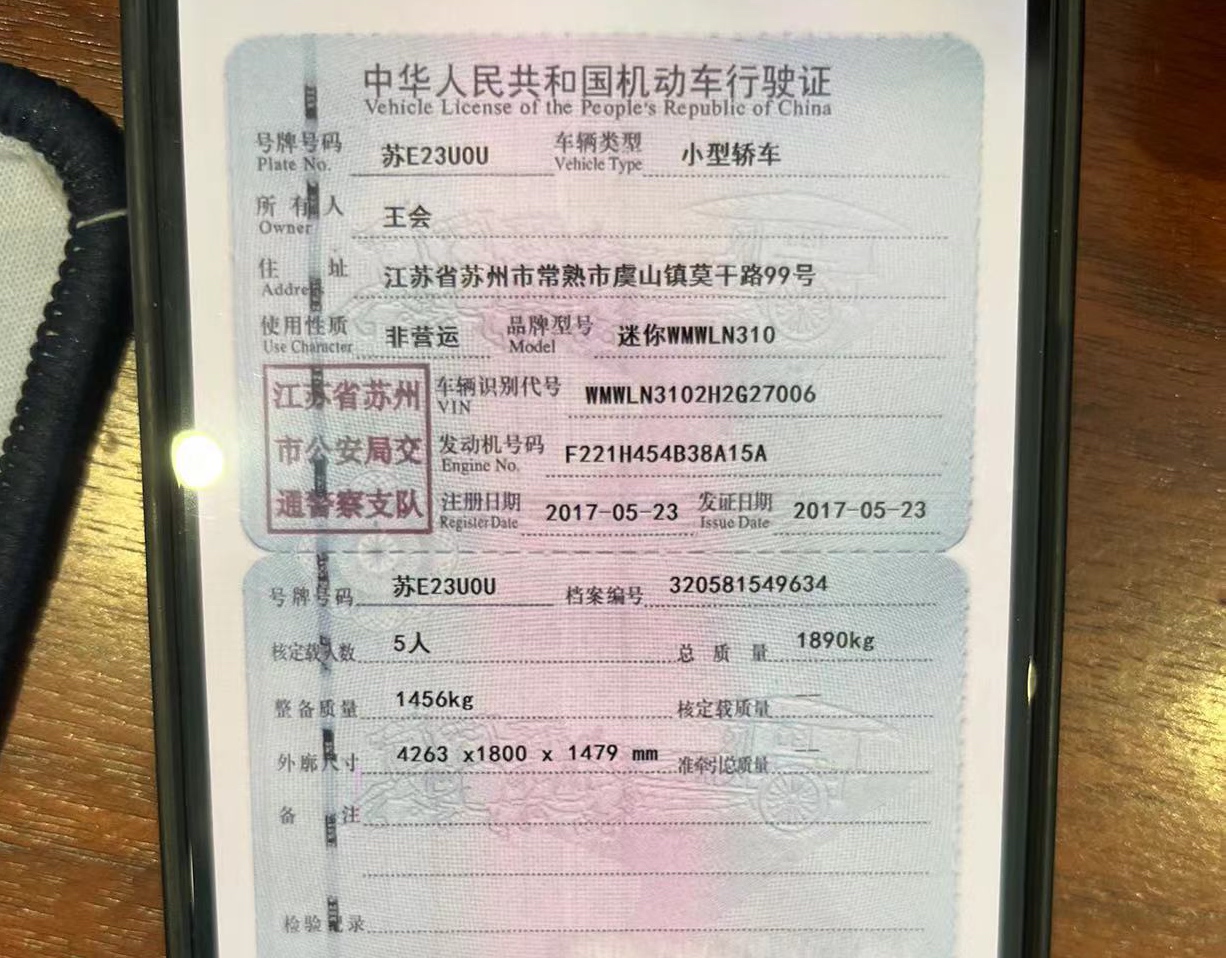 中华人民共和国机动车行驶证
Vehicle License of the People's Republic of China
号牌号码 Plate No. 苏E23U0U 车辆类型 Vehicle Type 小型轿车
所有人 Owner 王会
住址 Address 江苏省苏州市常熟市虞山镇莫干路99号
使用性质 Use Character 非营运 品牌型号 Model 迷你WMWLN310
江苏省苏州
市公安局交
通警察支队
车辆识别代号 VIN WMWLN3102H2G27006
发动机号码 Engine No. F221H454B38A15A
注册日期 Register Date 2017-05-23 发证日期 Issue Date 2017-05-23
号牌号码 苏E23U0U 档案编号 320581549634
核定载人数 5人 总质量 1890kg
整备质量 1456kg 核定载质量 —
外廓尺寸 4263 x1800 x 1479 mm 准牵引总质量 —
备注
检验记录